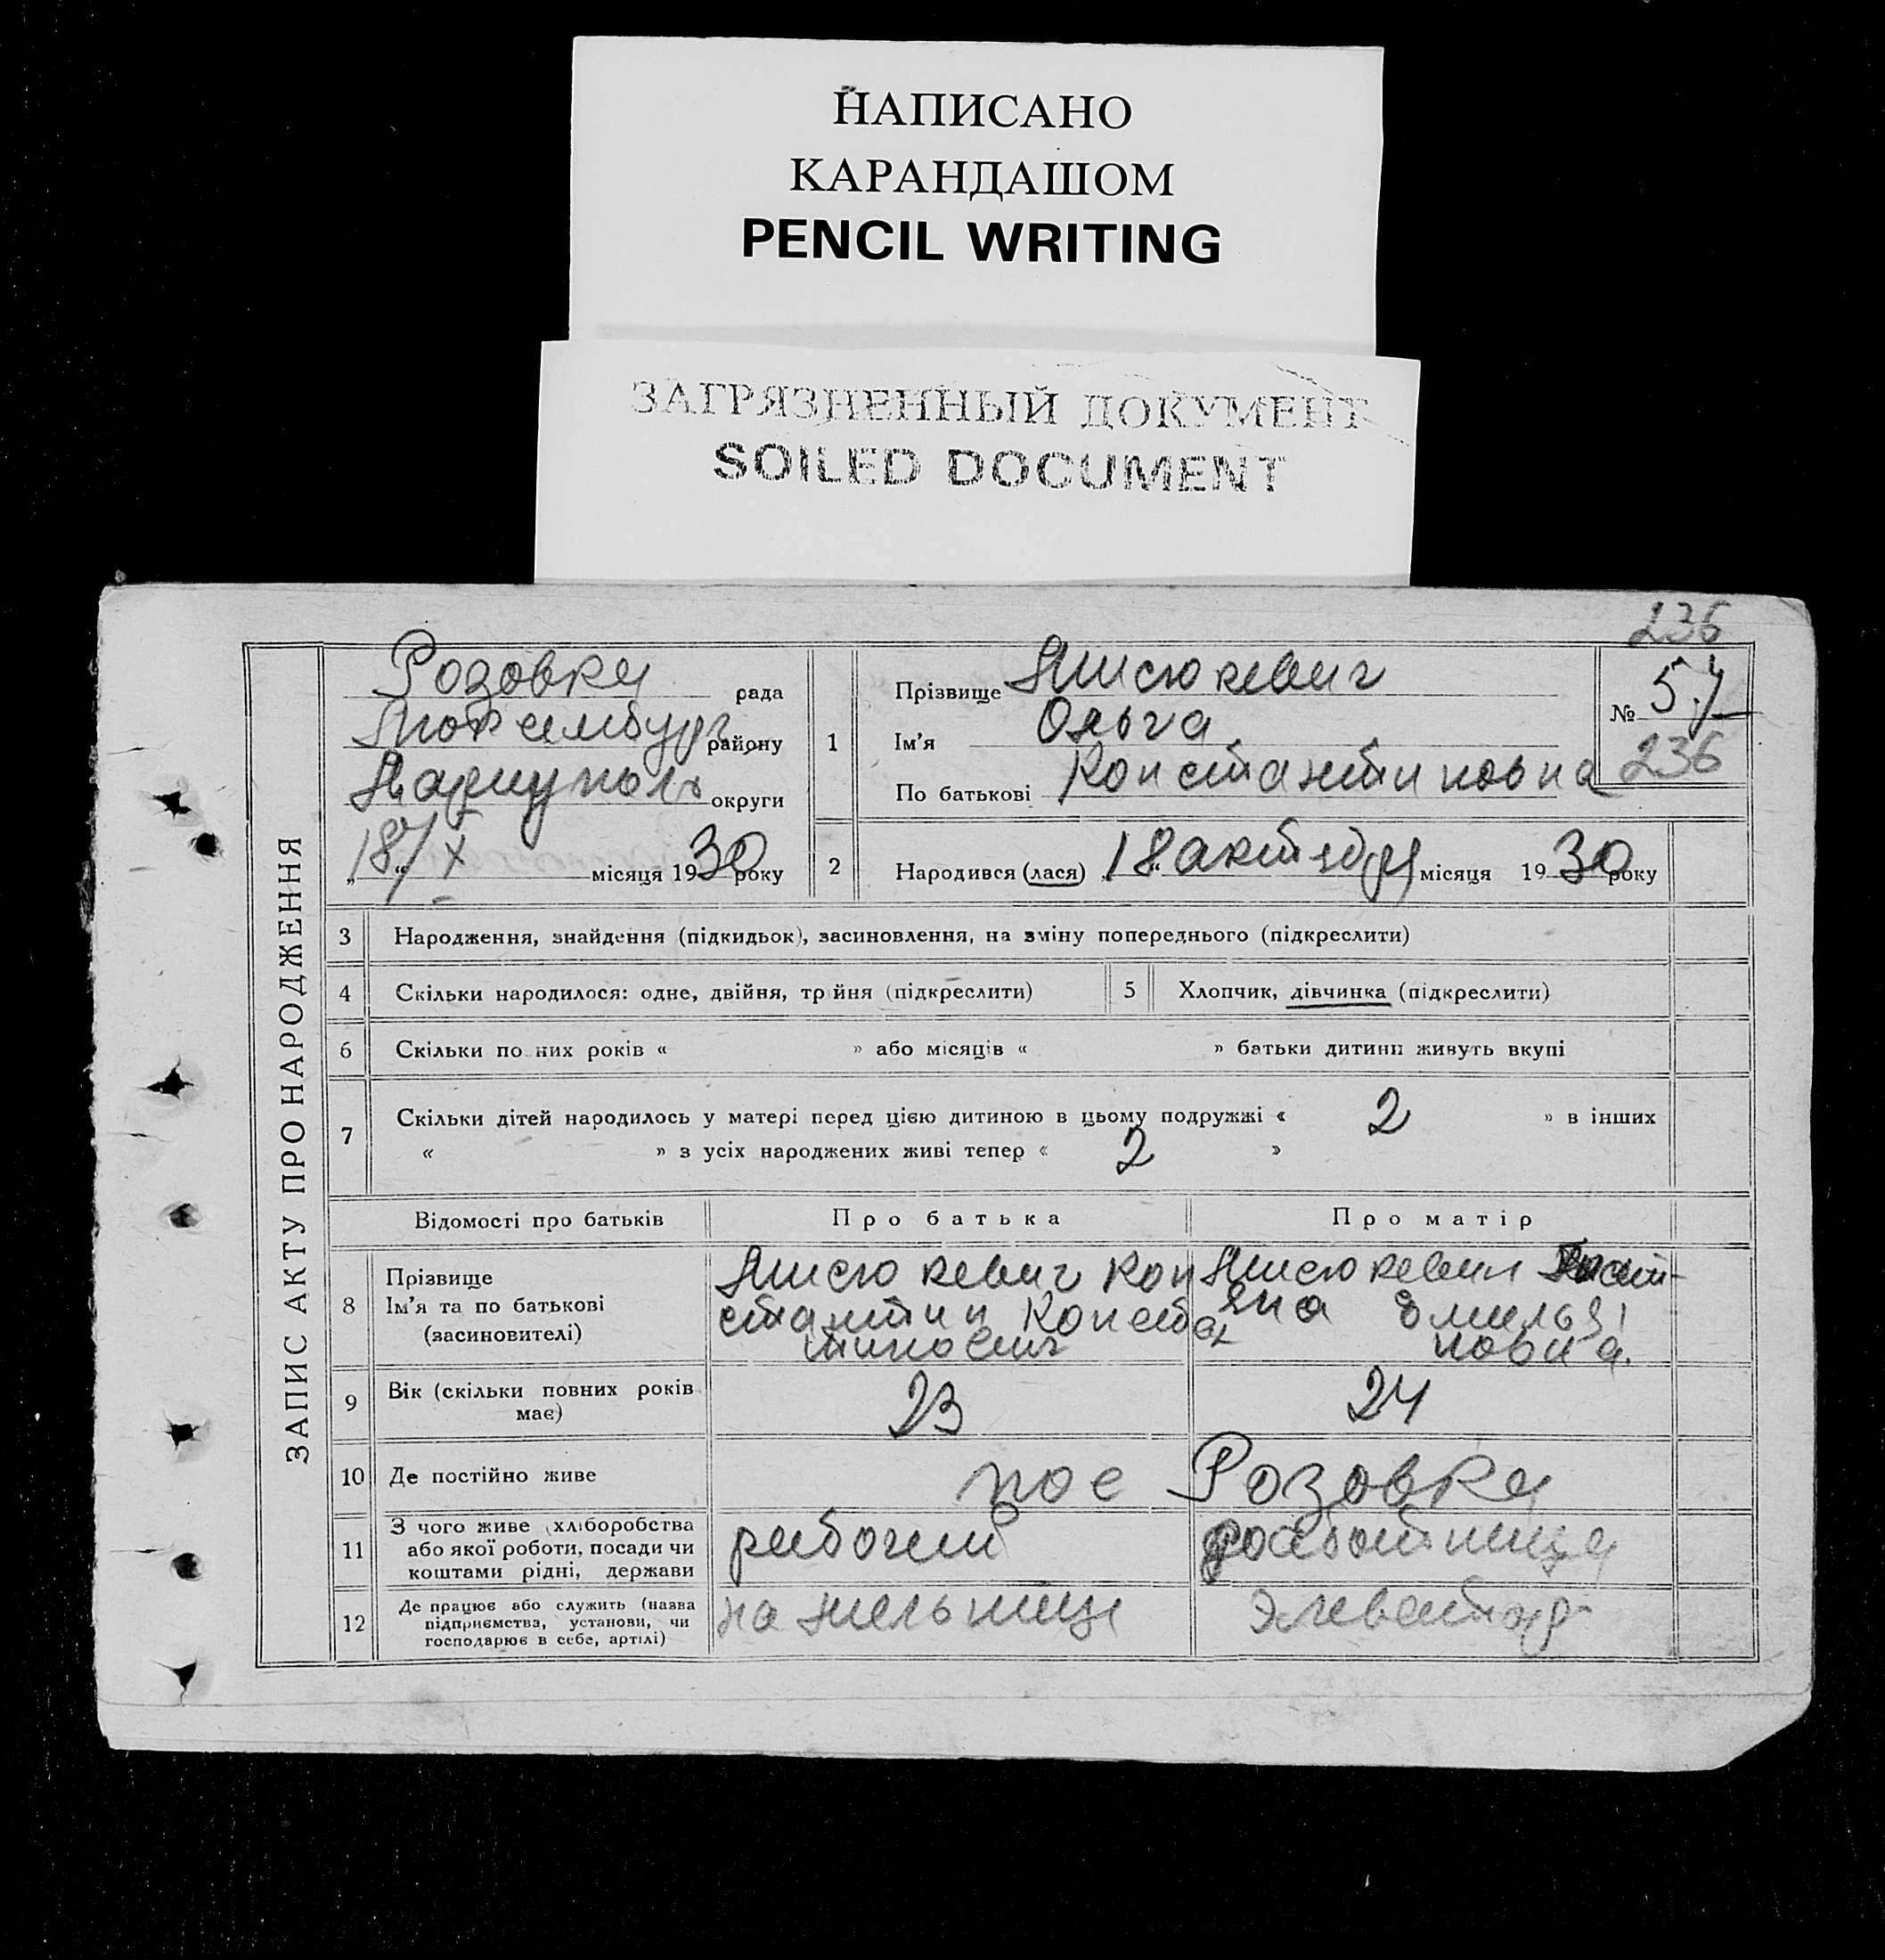 НАПИСАНО
КАРАНДАШОМ
PENCIL WRITING
ЗАГРЯЗНЕННЫЙ ДОКУМЕНТ
SOILED DOCUMENT
236
ЗАПИС АКТУ ПРО НАРОДЖЕННЯ
Розовка рада
району
Мариуполь округи
„18“ X місяця 1930 року
1
Прізвище
Ім'я Ольга
По батькові Константиновна
№ 57
236
2
Народився (лася) „18“ актября місяця 1930 року
3 Народження, знайдення (підкидьок), засиновлення, на зміну попереднього (підкреслити)
4 Скільки народилося: одне, двійня, трійня (підкреслити)
5 Хлопчик, дівчинка (підкреслити)
6 Скільки по них років « » або місяців « » батьки дитини живуть вкупі
7 Скільки дітей народилось у матері перед цією дитиною в цьому подружжі « 2 » в інших
« » з усіх народжених живі тепер « 2 »
Відомості про батьків
Про батька
Про матір
8
Прізвище
Ім'я та по батькові
(засиновителі)
Кон
стантин Констан
тинович
Емилья
новна.
9
Вік (скільки повних років
має)
23
24
10 Де постійно живе
пос Розовка
11
З чого живе (хліборобства
або якої роботи, посади чи
коштами рідні, держави
рабочий
работница
12
Де працює або служить (назва
підприємства, установи, чи
господарює в себе, артілі)
на мельнице
элеватор